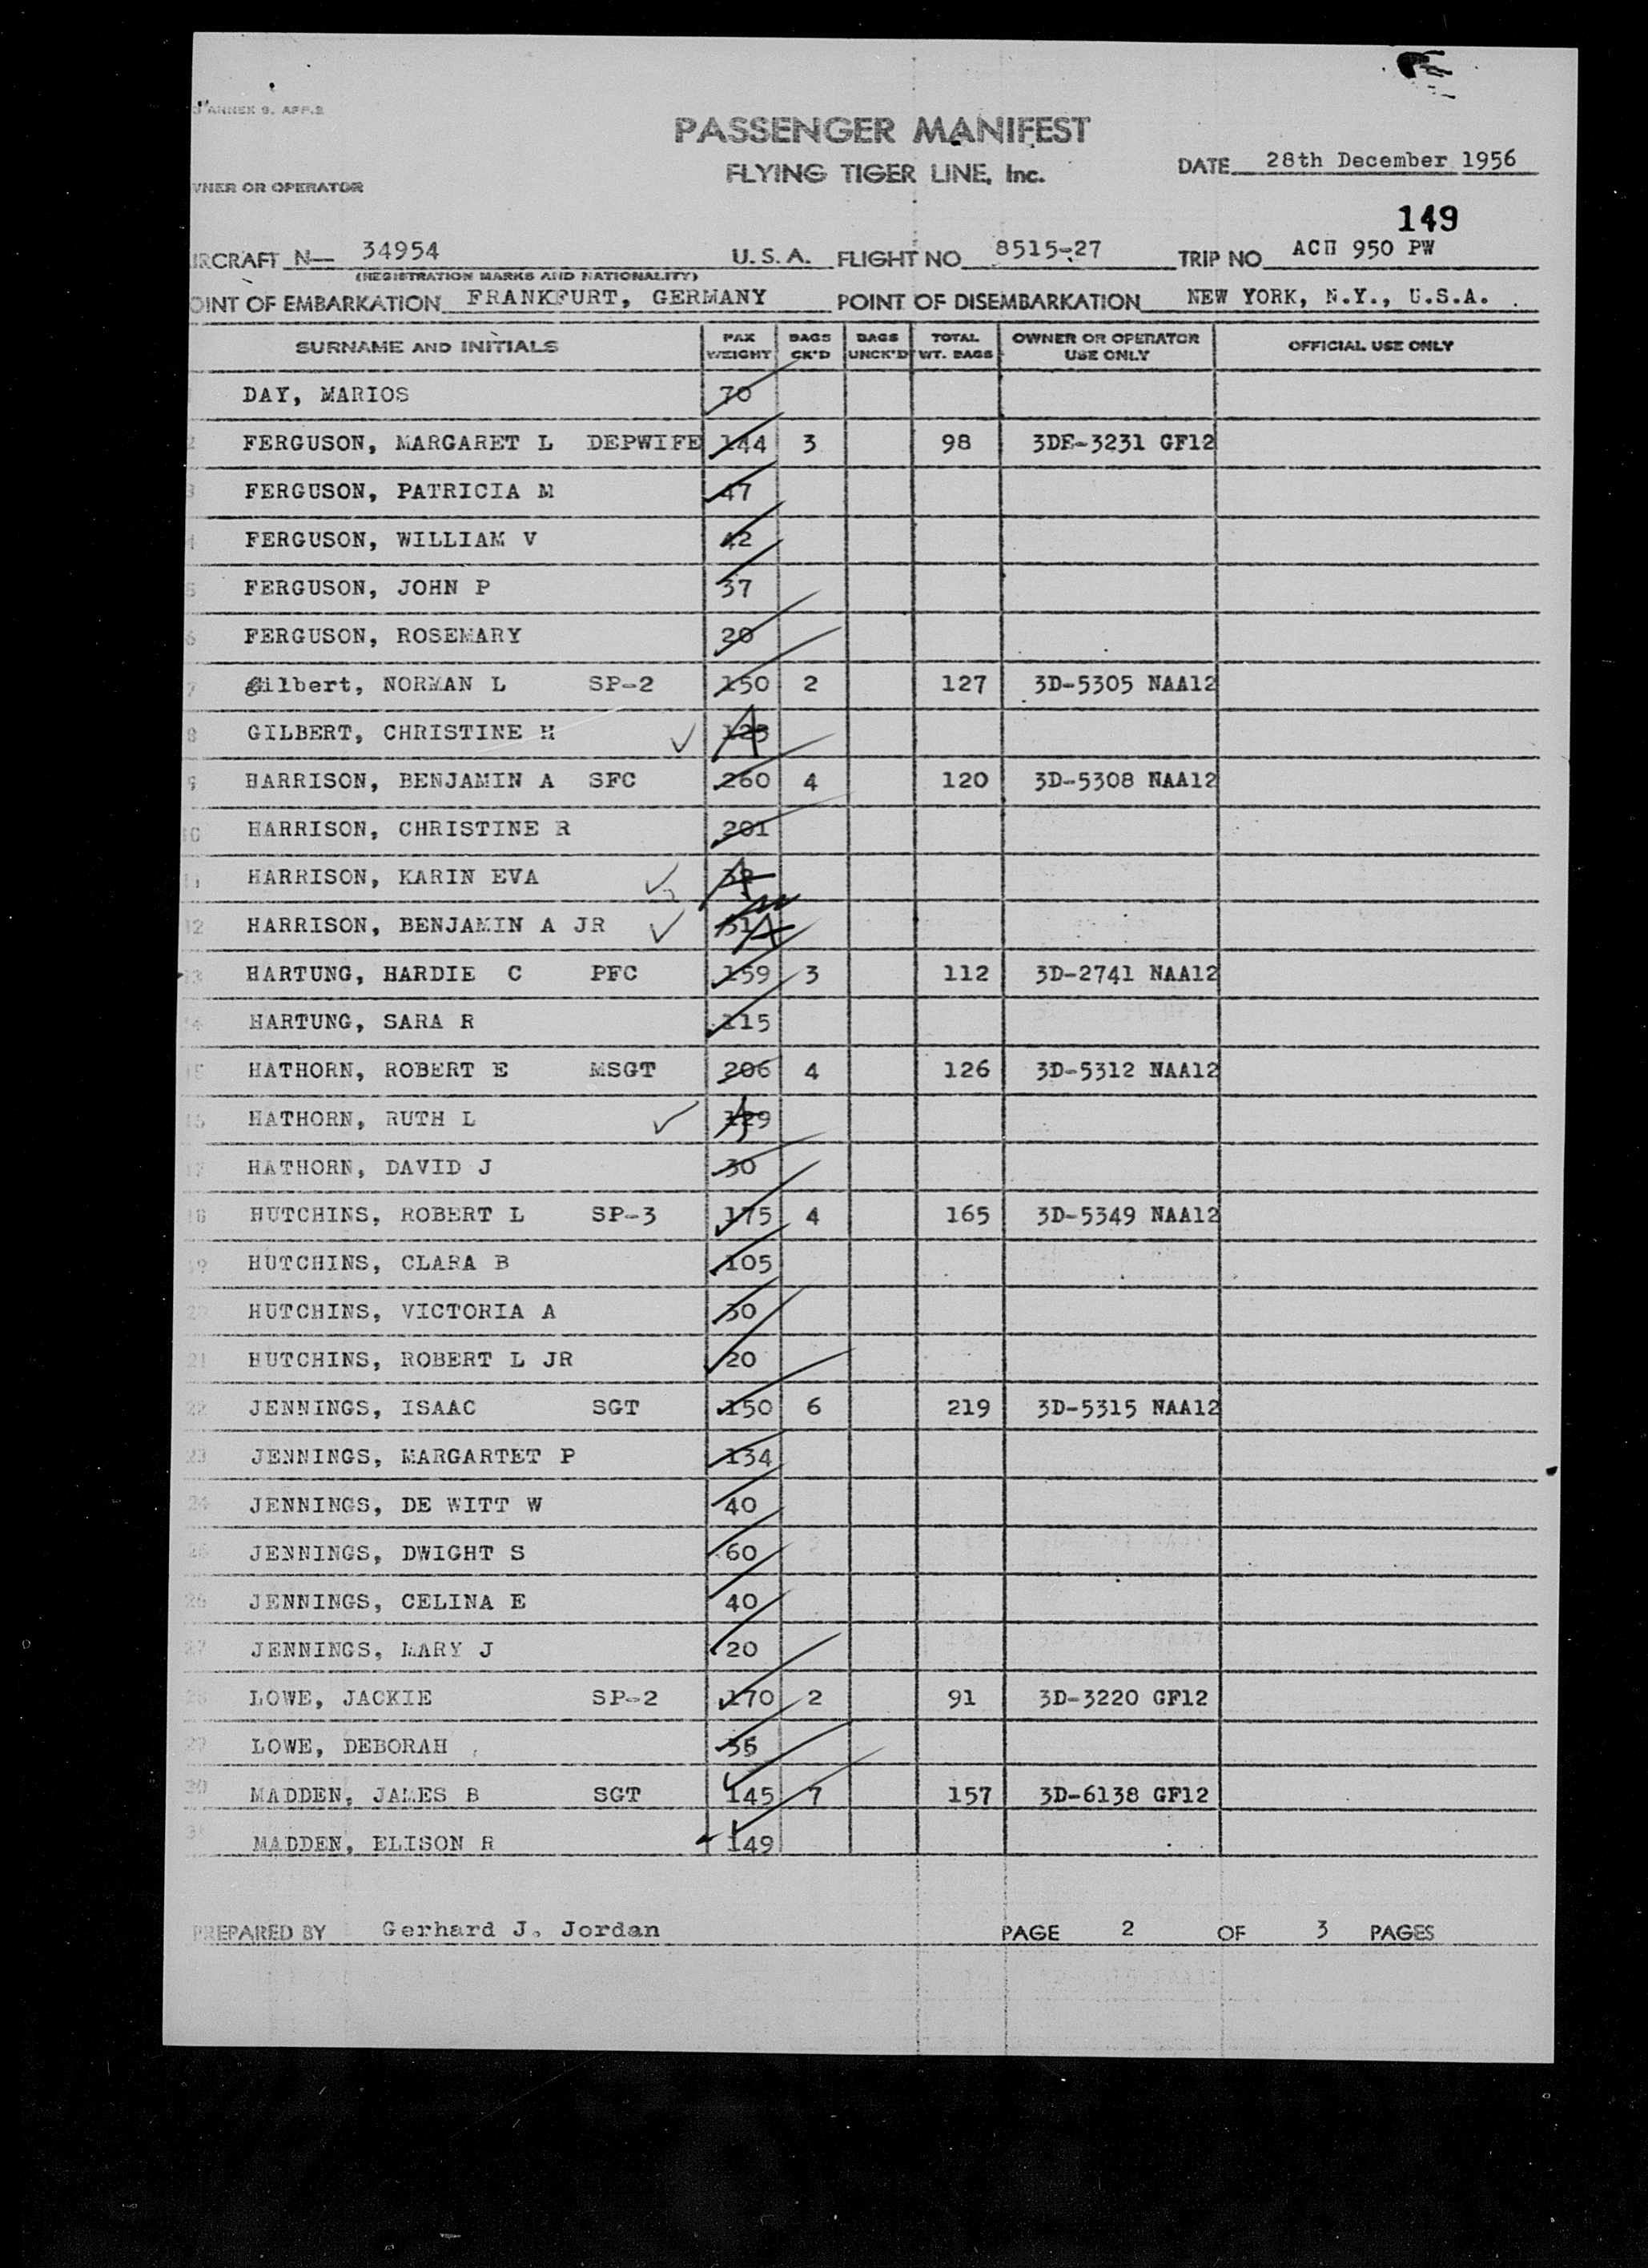 ANNEX 9. APP.2
PASSENGER MANIFEST
FLYING TIGER LINE, Inc.
DATE 28th December 1956
WNER OR OPERATOR
149
IRCRAFT N— 34954 U.S.A. FLIGHT NO 8515-27 TRIP NO ACH 950 PW
(REGISTRATION MARKS AND NATIONALITY)
OINT OF EMBARKATION FRANKFURT, GERMANY POINT OF DISEMBARKATION NEW YORK, N.Y., U.S.A.
SURNAME AND INITIALS PAX WEIGHT BAGS CK'D BAGS UNCK'D TOTAL WT. BAGS OWNER OR OPERATOR USE ONLY OFFICIAL USE ONLY
DAY, MARIOS 70
2 FERGUSON, MARGARET L DEPWIFE 144 3 98 3DE-3231 GF12
3 FERGUSON, PATRICIA M 47
4 FERGUSON, WILLIAM V 42
5 FERGUSON, JOHN P 37
6 FERGUSON, ROSEMARY 20
7 Gilbert, NORMAN L SP-2 150 2 127 3D-5305 NAA12
8 GILBERT, CHRISTINE H 123
9 HARRISON, BENJAMIN A SFC 260 4 120 3D-5308 NAA12
10 HARRISON, CHRISTINE R 201
11 HARRISON, KARIN EVA
12 HARRISON, BENJAMIN A JR 31
13 HARTUNG, HARDIE C PFC 159 3 112 3D-2741 NAA12
14 HARTUNG, SARA R 115
15 HATHORN, ROBERT E MSGT 206 4 126 3D-5312 NAA12
16 HATHORN, RUTH L 129
17 HATHORN, DAVID J 30
18 HUTCHINS, ROBERT L SP-3 175 4 165 3D-5349 NAA12
19 HUTCHINS, CLARA B 105
20 HUTCHINS, VICTORIA A 30
21 HUTCHINS, ROBERT L JR 20
22 JENNINGS, ISAAC SGT 150 6 219 3D-5315 NAA12
23 JENNINGS, MARGARTET P 134
24 JENNINGS, DE WITT W 40
25 JENNINGS, DWIGHT S 60
26 JENNINGS, CELINA E 40
27 JENNINGS, MARY J 20
28 LOWE, JACKIE SP-2 170 2 91 3D-3220 GF12
29 LOWE, DEBORAH 35
30 MADDEN, JAMES B SGT 145 7 157 3D-6138 GF12
31 MADDEN, ELISON R 149
PREPARED BY Gerhard J. Jordan PAGE 2 OF 3 PAGES